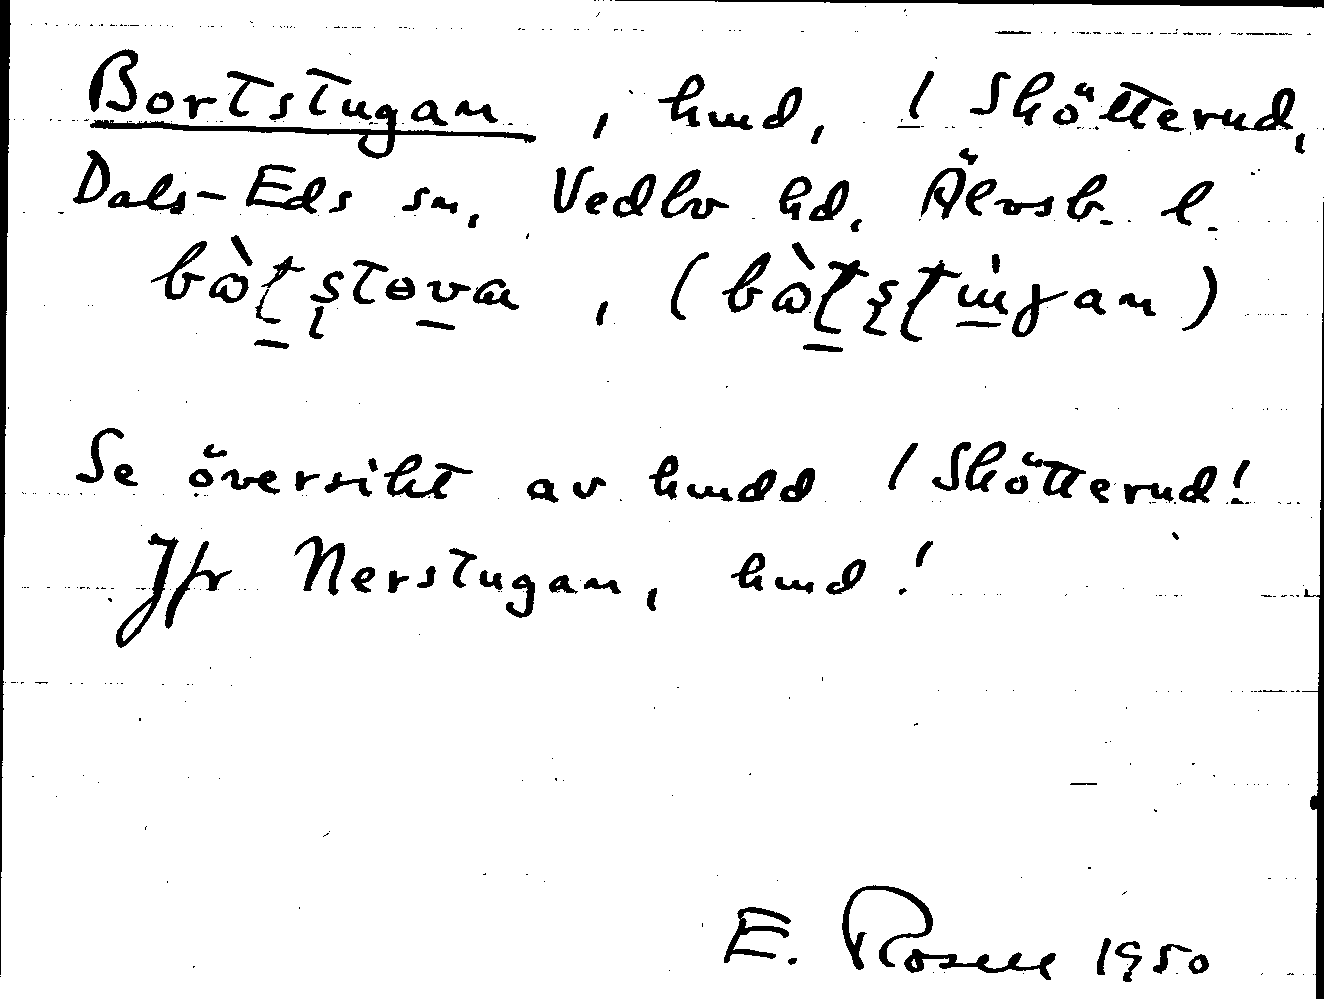 Bortstugan, hmd, 1 Skötterud,
Dals-Eds sn, Vedbo hd, Älvsb. l.
bòtstova, (bòtstùgan)
Se översikt av hmdd 1 Skötterud!
Jfr Nerstugan, hmd!
E. Rosell 1950